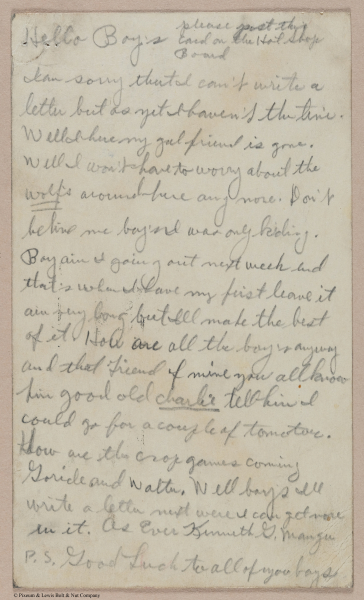 Hello Boy's please post this
card on the Hot Shop
Board
I am sorry that I can't write a
letter but as yet I haven't the time.
Well I here my gal friend is gone.
Well I won't have to worry about the
wolfs around here any more. Don't
belive me boys I was only kiding.
Boy am I going out next week and
that's when I have my first leave it
ain very long but I'll make the best
of it. How are all the boys anyway
and that friend of mine you all know
him good old charlie tell him I
could go for a couple of tomatoe.
How are the crap games coming
and Walter. Well boys I'll
write a letter next were I can get more
in it. As Ever Kenneth G.
P.S. Good Luck to all of you boys
© Pheoll & Lewis Bolt & Nut Company